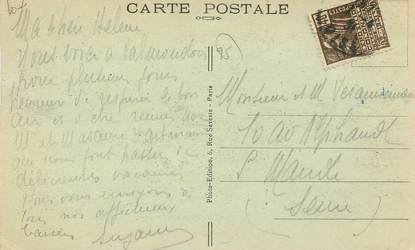 CARTE POSTALE
Ma chère Helene
Nous voici à Valmondois
pour plusieurs jours
heureux de respirer le bon
air et d'être reçus par
Mr et Madame
qui nous font passer de
délicieuses vacances
Nous vous envoyons à
tous nos affectueux
baisers Suzanne
95
Photo-Edition, 6, Rue Saveste - Paris
Monsieur et M
10 av Alphand
St Mandé
(Seine)
POSTES